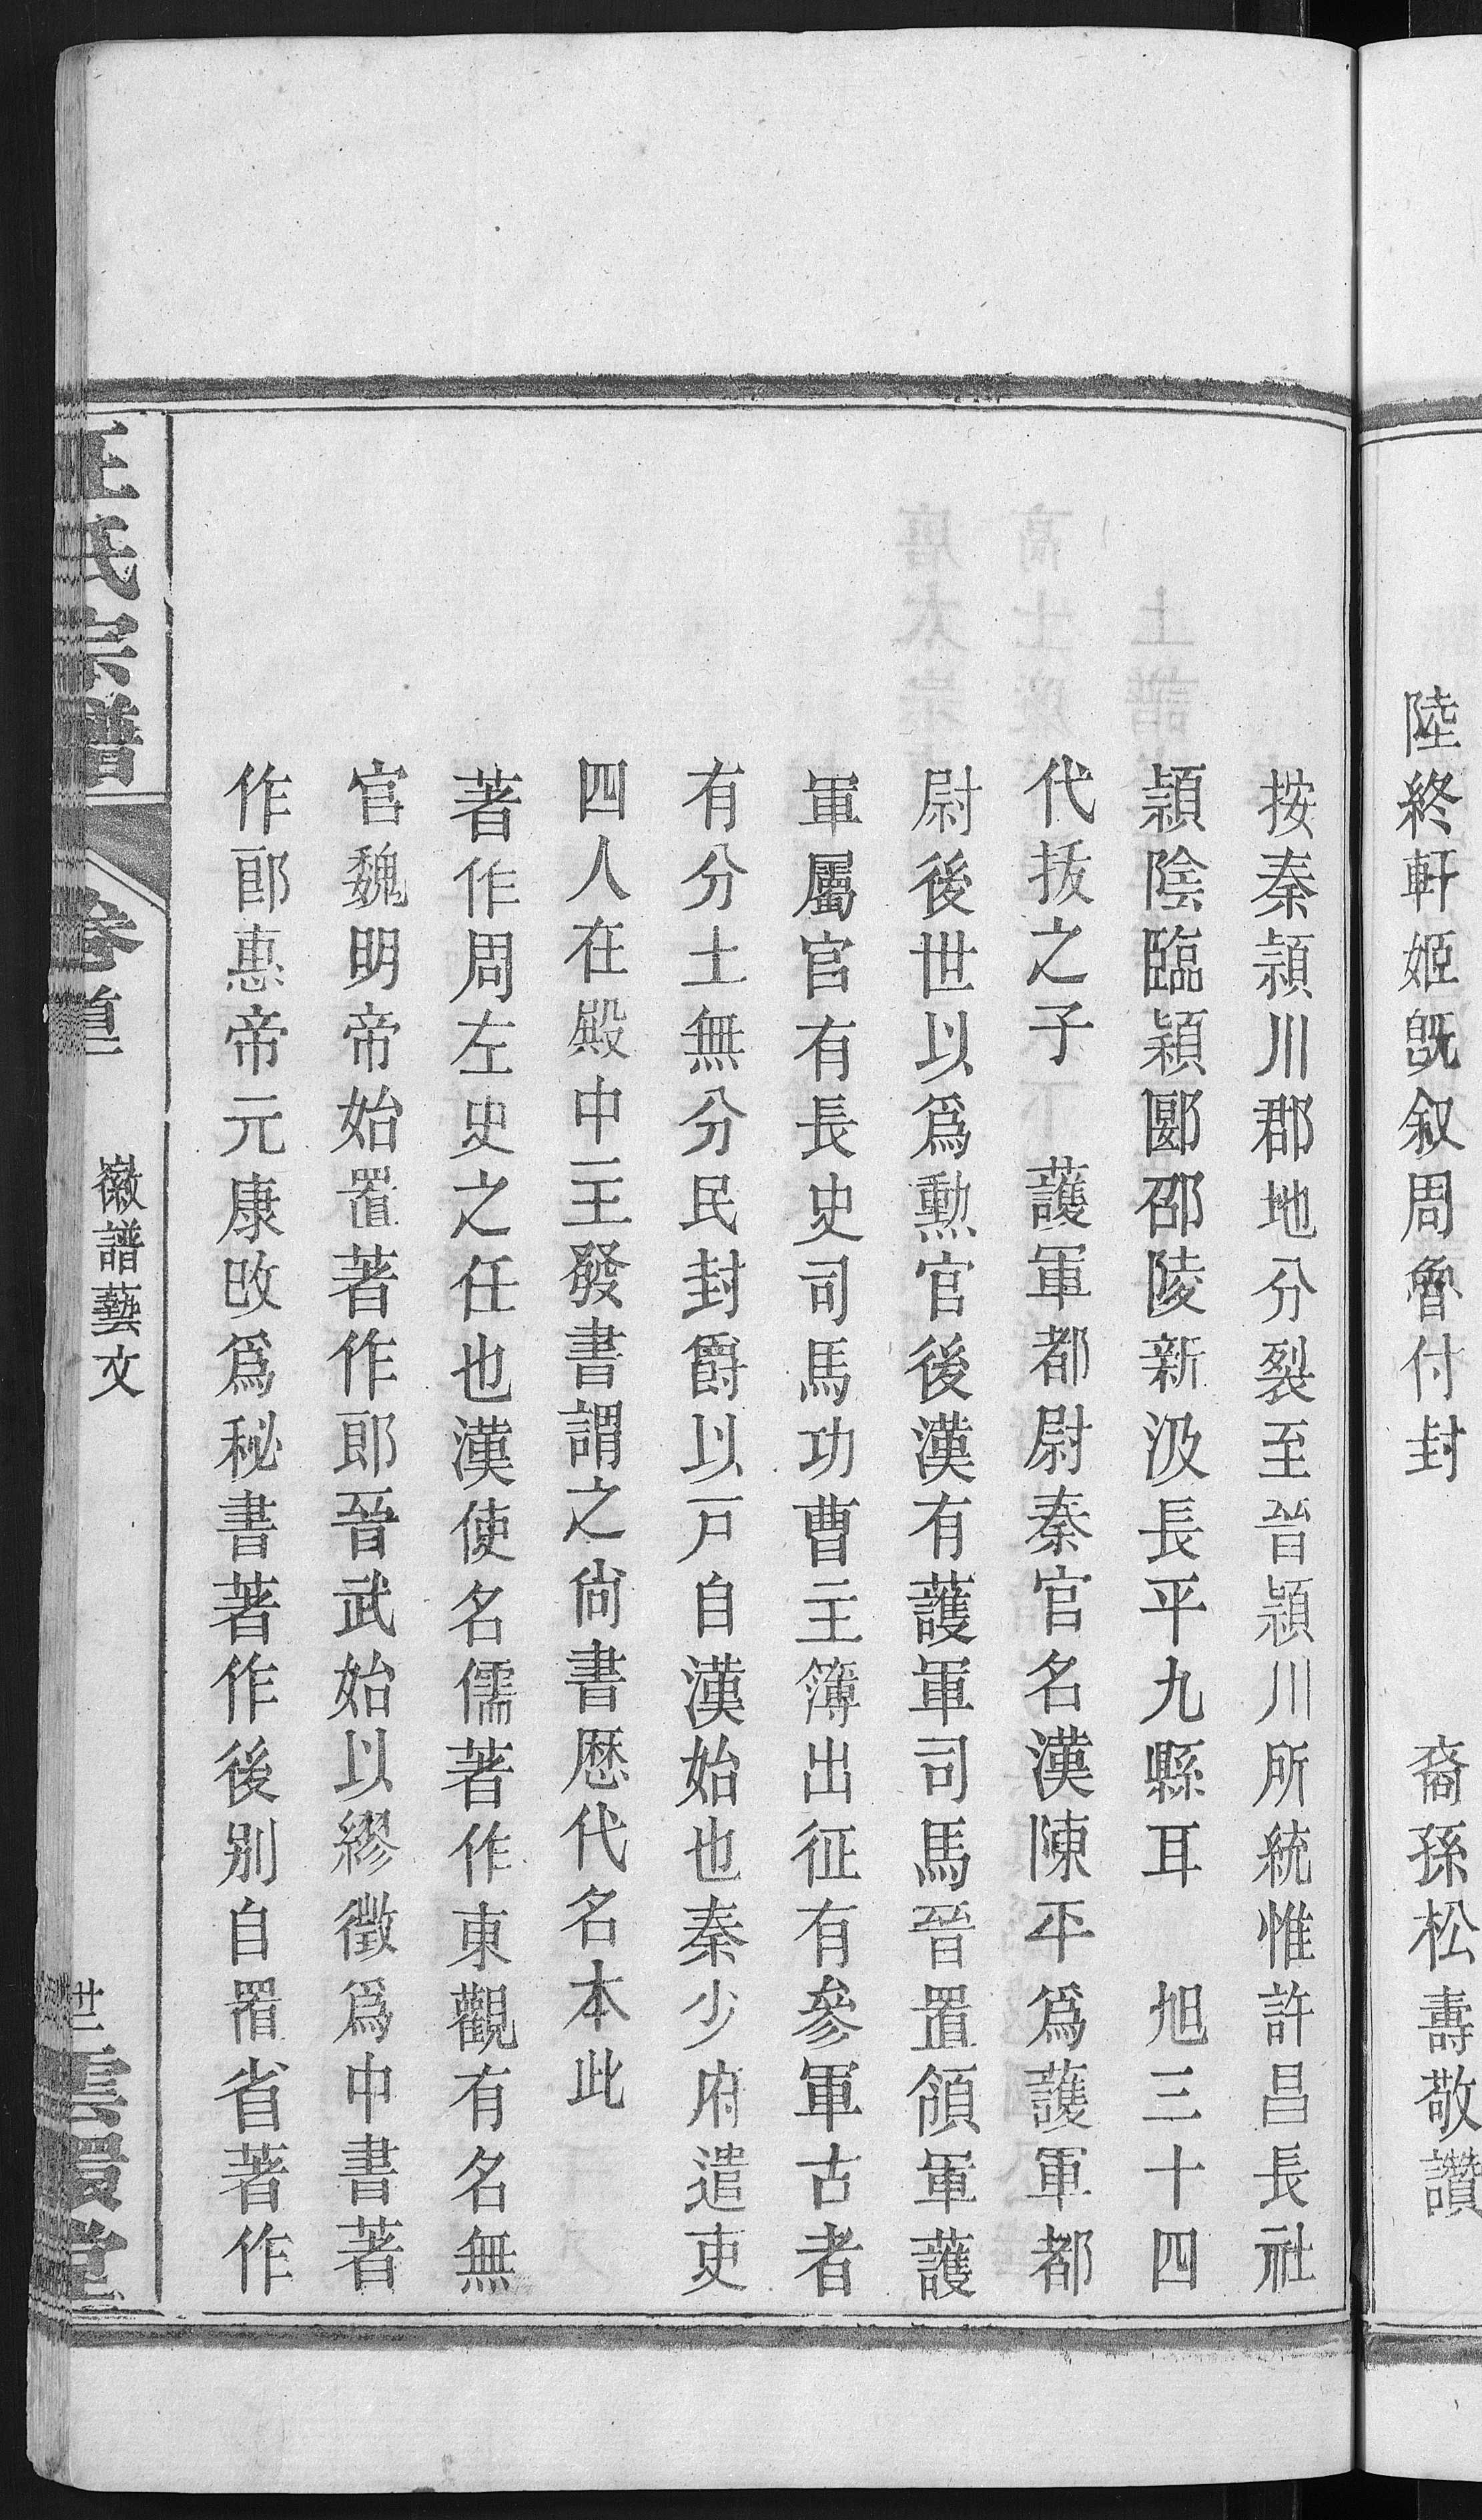 陸終軒姬旣叙周魯付封
裔孫松壽敬讚
按秦潁川郡地分裂至晉潁川所統惟許昌長社
潁陰臨潁郾邵陵新汲長平九縣耳　旭三十四
代抜之子　護軍都尉秦官名漢陳平爲護軍都
尉後世以爲勲官後漢有護軍司馬晉置領軍護
軍屬官有長史司馬功曹主簿出征有參軍古者
有分土無分民封爵以戸自漢始也秦少府遣吏
四人在殿中主發書謂之尙書歷代名本此
著作周左史之任也漢使名儒著作東觀有名無
官魏明帝始置著作郎晉武始以繆徵爲中書著
作郎惠帝元康改爲秘書著作後别自置省著作
氏宗譜
卷首
徽譜藝文
世